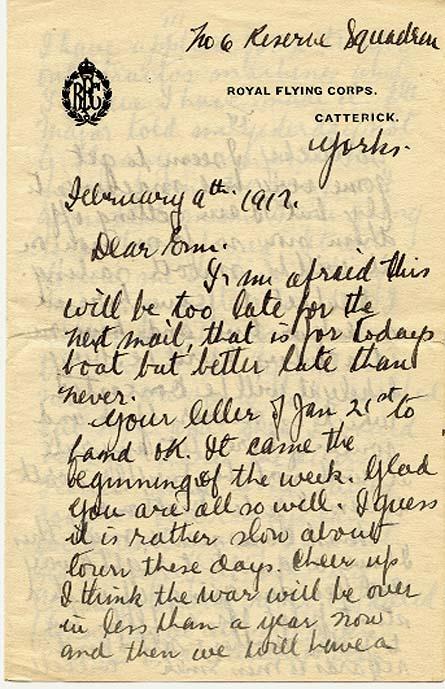 No 6 Reserve Squadron
RFC
ROYAL FLYING CORPS.
CATTERICK.
Yorks.
February 9th. 1917.
Dear Em.
I'm afraid this
will be too late for the
next mail, that is for todays
boat but better late than
never.
Your letter of Jan 21st to
hand OK. It came the
beginning of the week. Glad
you are all so well. I guess
it is rather slow about
town these days. Cheer up
I think the war will be over
in less than a year now
and then we will have a